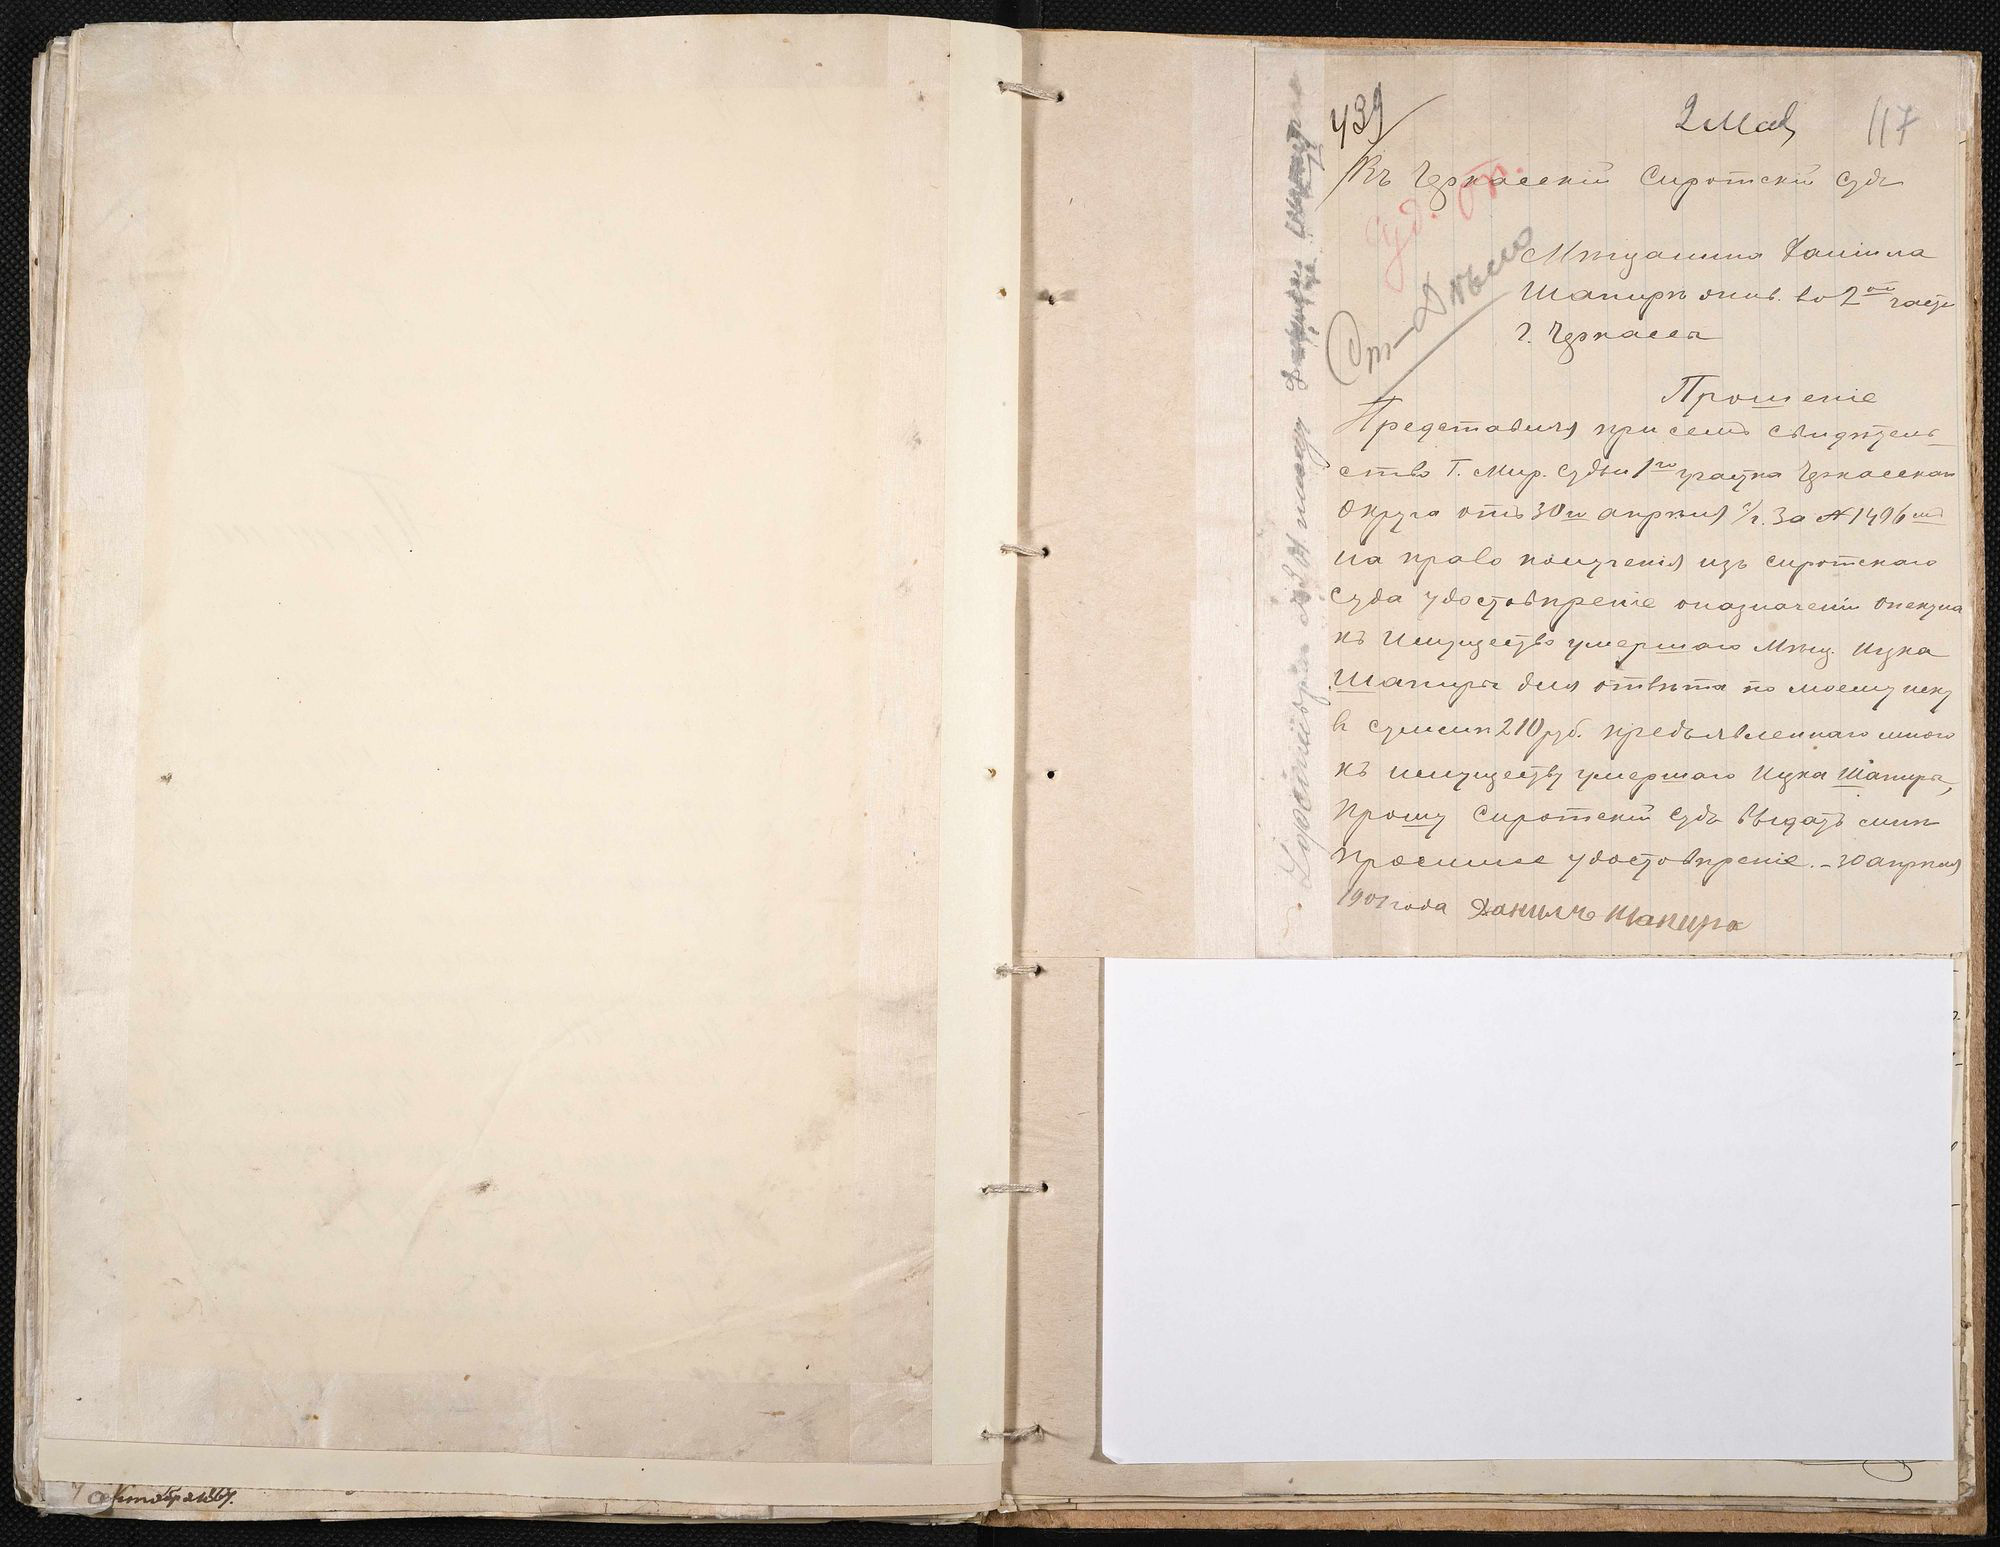 439
2 Мая
117
Въ Черкасскій Сиротскій Судъ
Уд. от.
Ст-Дѣло
Мѣщанина Даніила
Шапиры жив. во 2ой части
г. Черкассъ
Прошеніе
Представляя при семъ свидѣтель-
ство Г. Мир. Судьи 1го участка Черкасскаго
Округа отъ 30го апрѣля с/г. за № 1496мъ
на право полученія изъ сиротскаго
суда удостовѣреніе о назначеніи опекуна
къ имуществу умершаго Мѣщ. Ицка
Шапиры для отвѣта по моему иску
въ суммѣ 210 руб. предъявленнаго мною
къ имуществу умершаго Ицка Шапиры,
прошу Сиротскій Судъ выдать мнѣ
просимое удостовѣреніе. - 30 апрѣля
1901 года Данилъ Шапира
7 октября